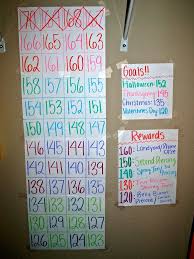 166 165 164 163
162 161 160 159
158 157 156 155
154 153 152 151
150 149 148 147
146 145 144 143
142 141 140 139
138 137 136 135
134 133 132 131
130 129 128 127
126 125 124 123
Goals!!
Halloween 152
Thanksgiving 145
Christmas: 135
Valentines Day: 120
Rewards
160:
150: Second Piercing
140: Spring
130:
120: